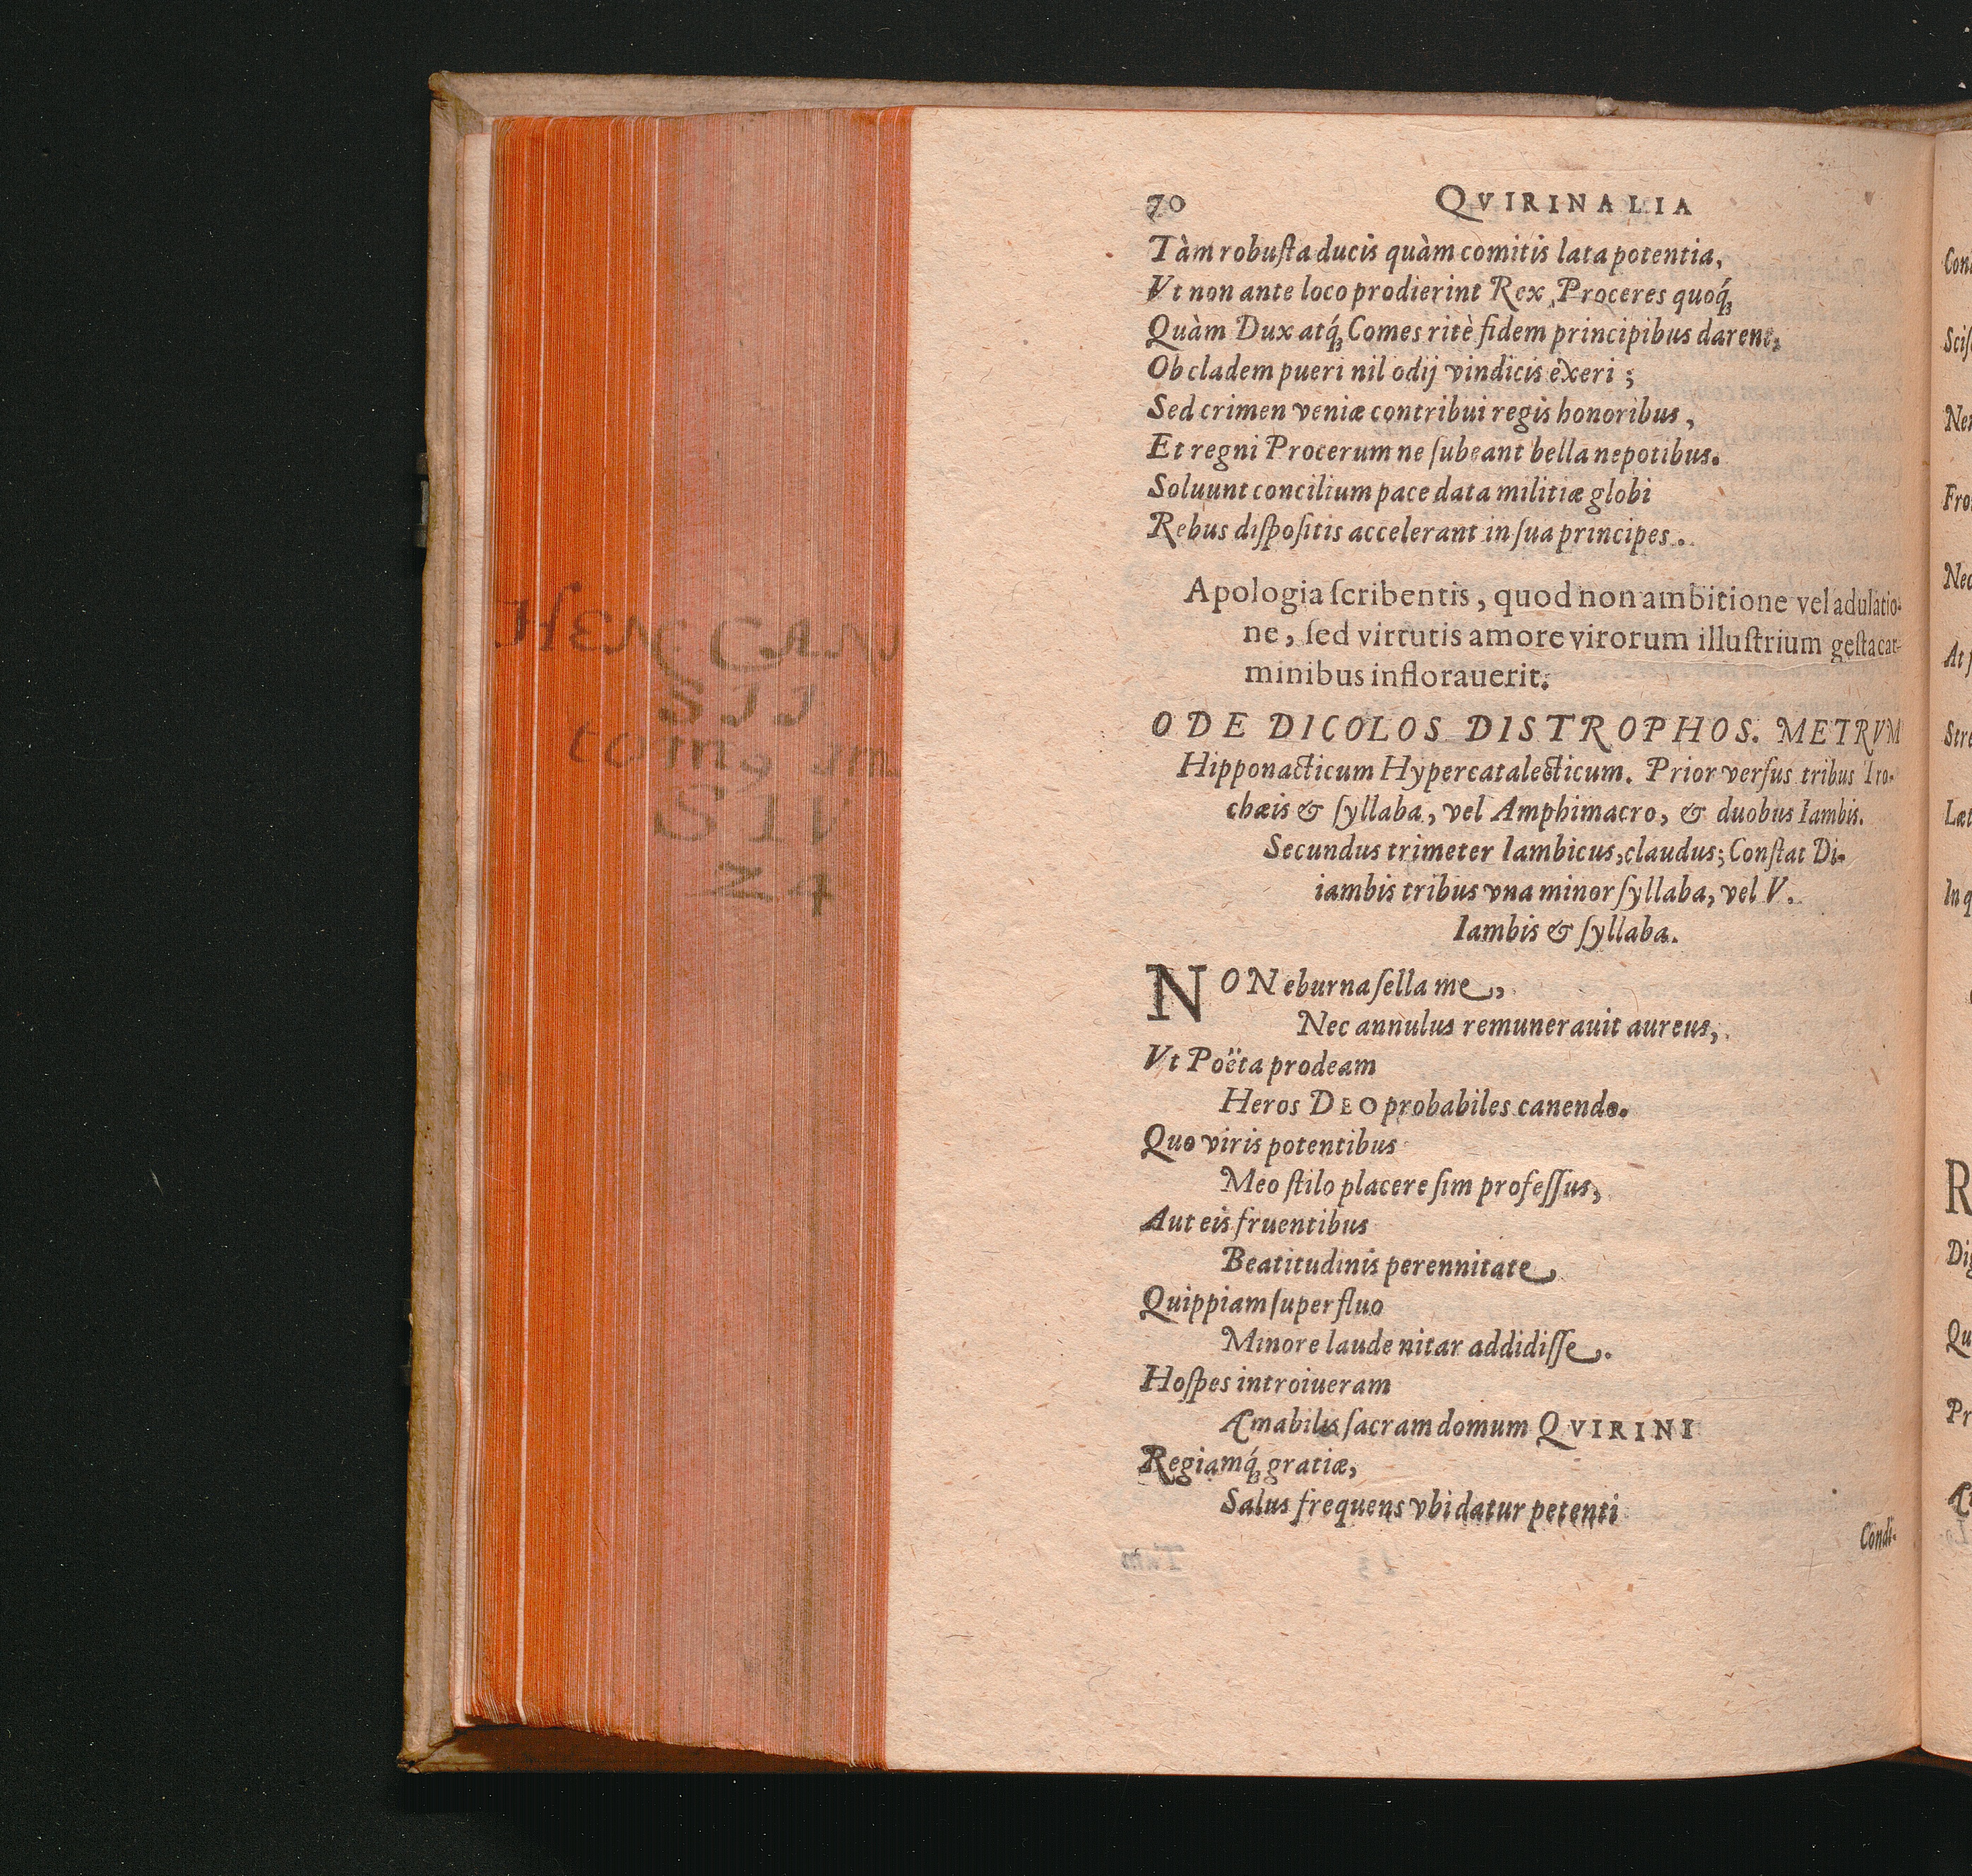 70 QVIRINALIA
Tàm robuſta ducis quàm comitis lata potentia,
Vt non ante loco prodierint Rex, Proceres quoq́ꝫ
Quàm Dux atq́ꝫ Comes ritè fidem principibus darent,
Ob cladem pueri nil odij vindicis exeri;
Sed crimen veniæ contribui regis honoribus,
Et regni Procerum ne ſubeant bella nepotibus.
Soluunt concilium pace data militiæ globi
Rebus diſpoſitis accelerant in ſua principes.
Apologia ſcribentis, quod non ambitione vel adulatio-
ne, ſed virtutis amore virorum illuſtrium geſta car-
minibus inflorauerit.
ODE DICOLOS DISTROPHOS. METRVM
Hipponacticum Hypercatalecticum. Prior verſus tribus Tro-
chæis & ſyllaba, vel Amphimacro, & duobus Iambis.
Secundus trimeter Iambicus, claudus; Conſtat Di-
iambis tribus vna minor ſyllaba, vel V.
Iambis & ſyllaba.
NON eburna ſella me,
Nec annulus remunerauit aureus,
Vt Poëta prodeam
Heros DEO probabiles canendo.
Quo viris potentibus
Meo ſtilo placere ſim profeſſus,
Aut eis fruentibus
Beatitudinis perennitate
Quippiam ſuperfluo
Minore laude nitar addidiſſe.
Hoſpes introiueram
Amabilis ſacram domum QVIRINI
Regiamq́ꝫ gratiæ,
Salus frequens vbi datur petenti
Condi-